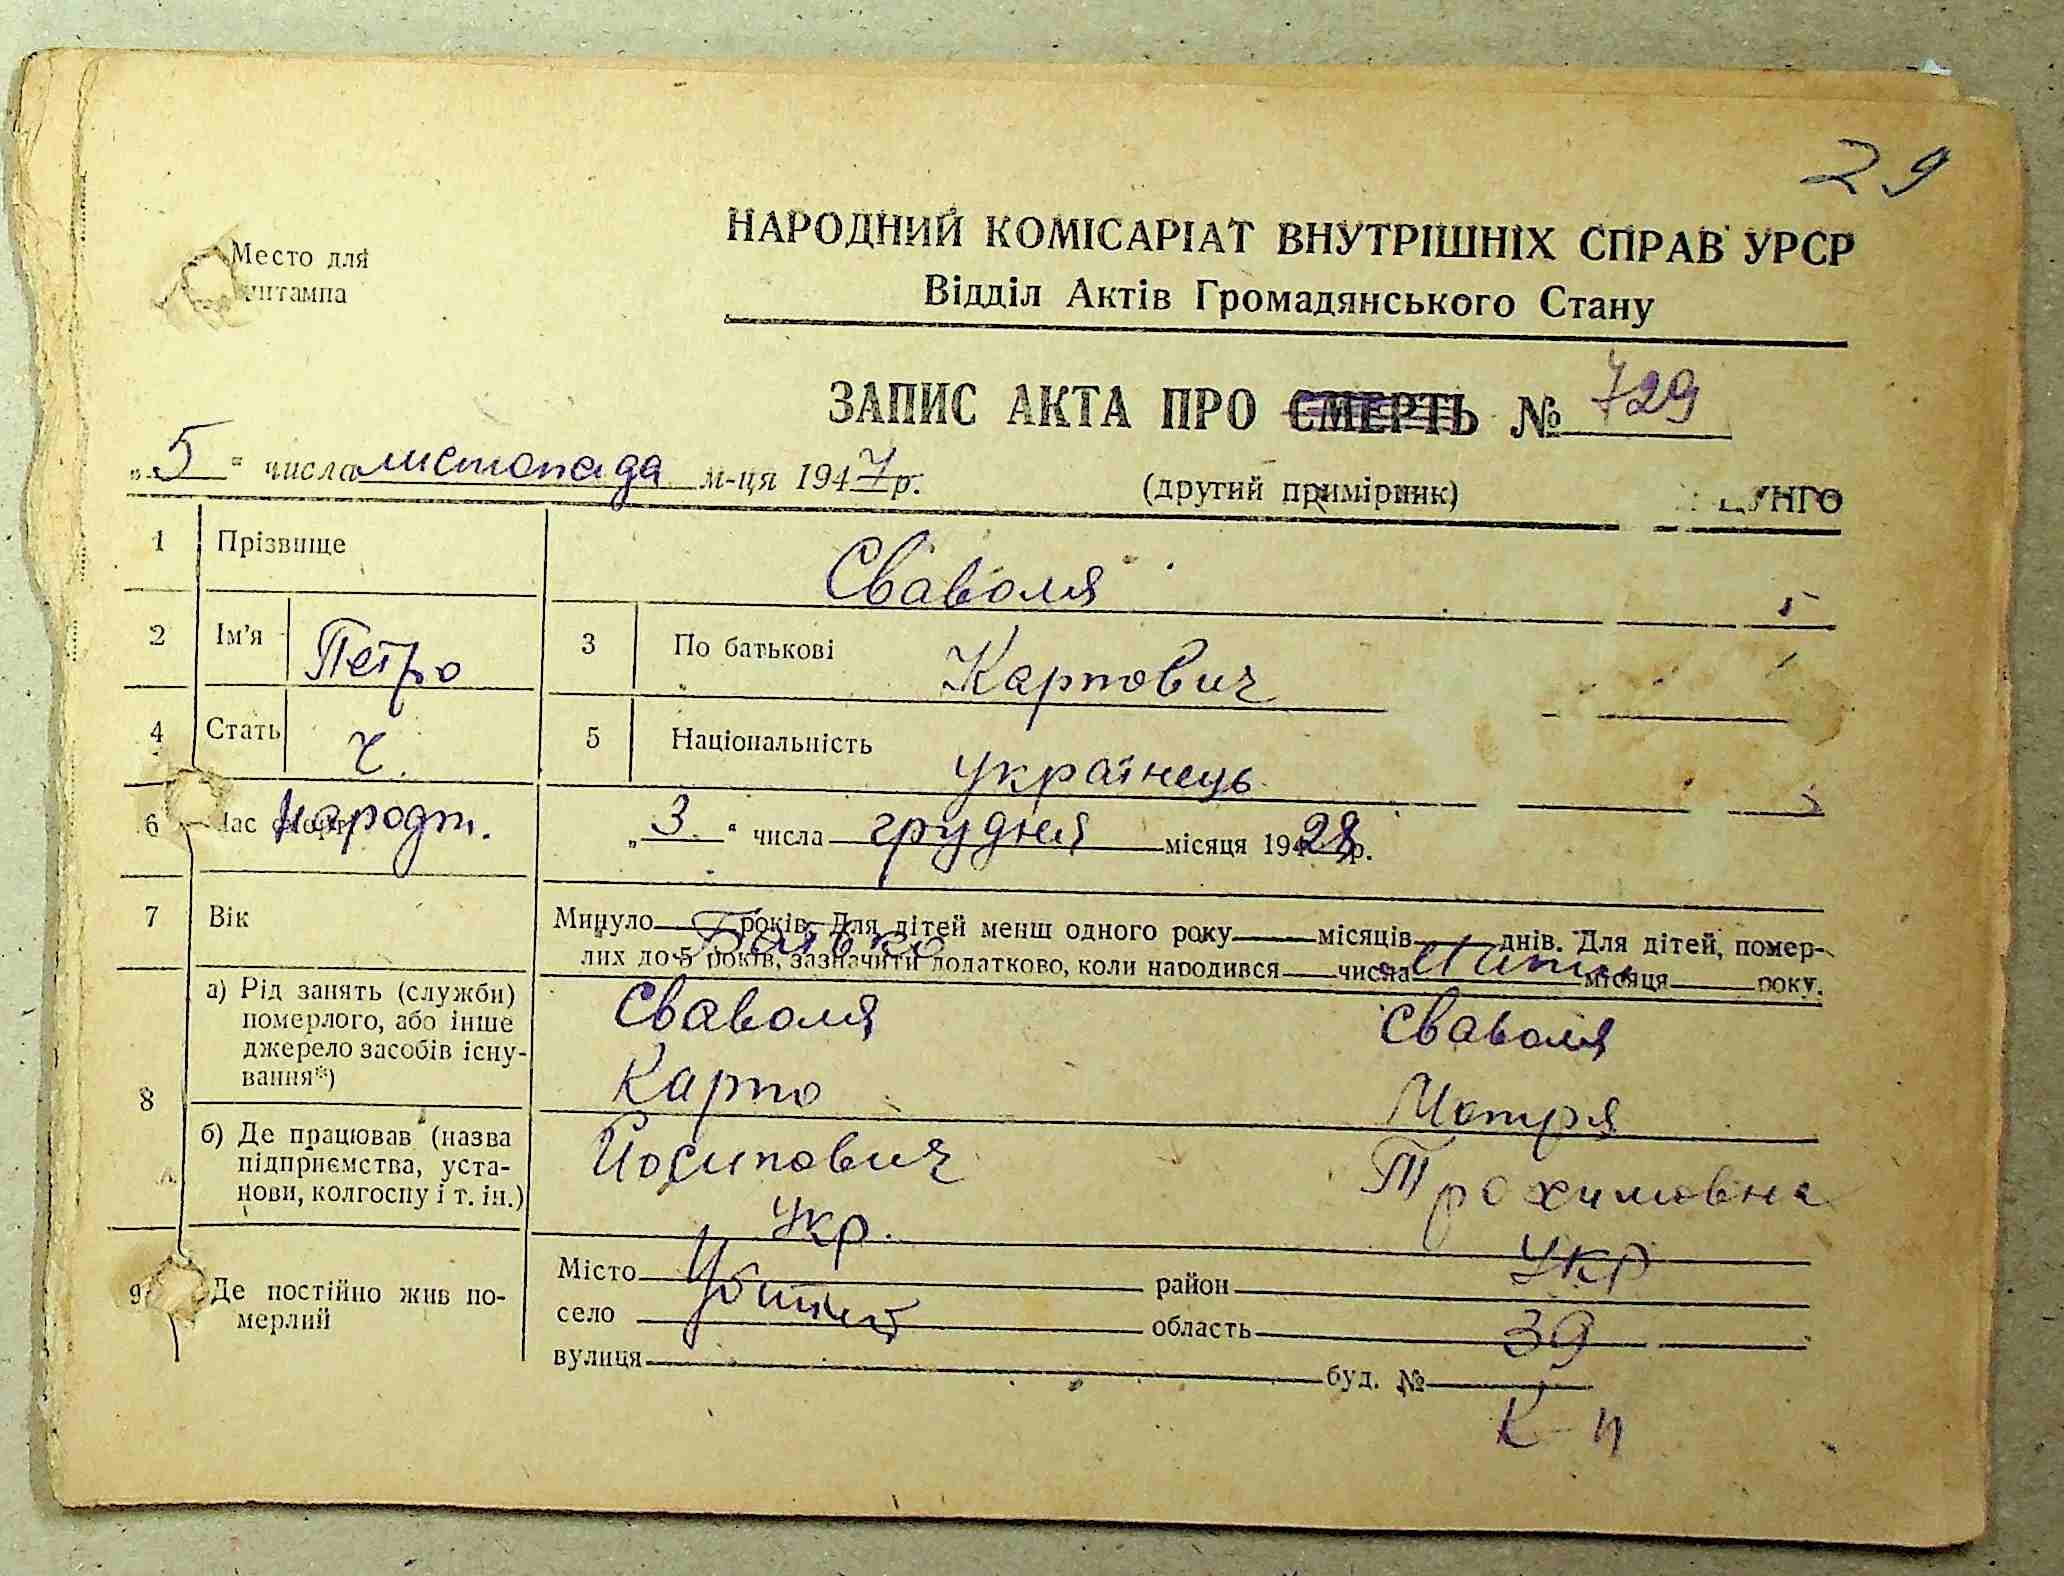 29
Место для
штампа
НАРОДНИЙ КОМІСАРІАТ ВНУТРІШНІХ СПРАВ УРСР
Відділ Актів Громадянського Стану
ЗАПИС АКТА ПРО СМЕРТЬ № 729
„5“ числа листопада м-ця 1947 р. (другий примірник) ЦУНГО
1 Прізвище Сваволя
2 Ім'я Петро 3 По батькові Карпович
4 Стать Ч. 5 Національність українець
6 Час народж. „3“ числа грудня місяця 1928 р.
7 Вік Минуло років. Для дітей менш одного року місяців днів. Для дітей, помер-
лих до 5 років, зазначити додатково, коли народився числа місяця року.
Батько Мати
8 а) Рід занять (служби)
померлого, або інше
джерело засобів існу-
вання*)
Сваволя Сваволя
Карпо Мотря
б) Де працював (назва
підприємства, уста-
нови, колгоспу і т. ін.)
Йосипович Трохимовна
Укр. Укр
9 Де постійно жив по-
мерлий
Місто район
село область 39
вулиця буд. №
К-п